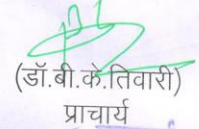 (डॉ.बी.के.तिवारी)
प्राचार्य